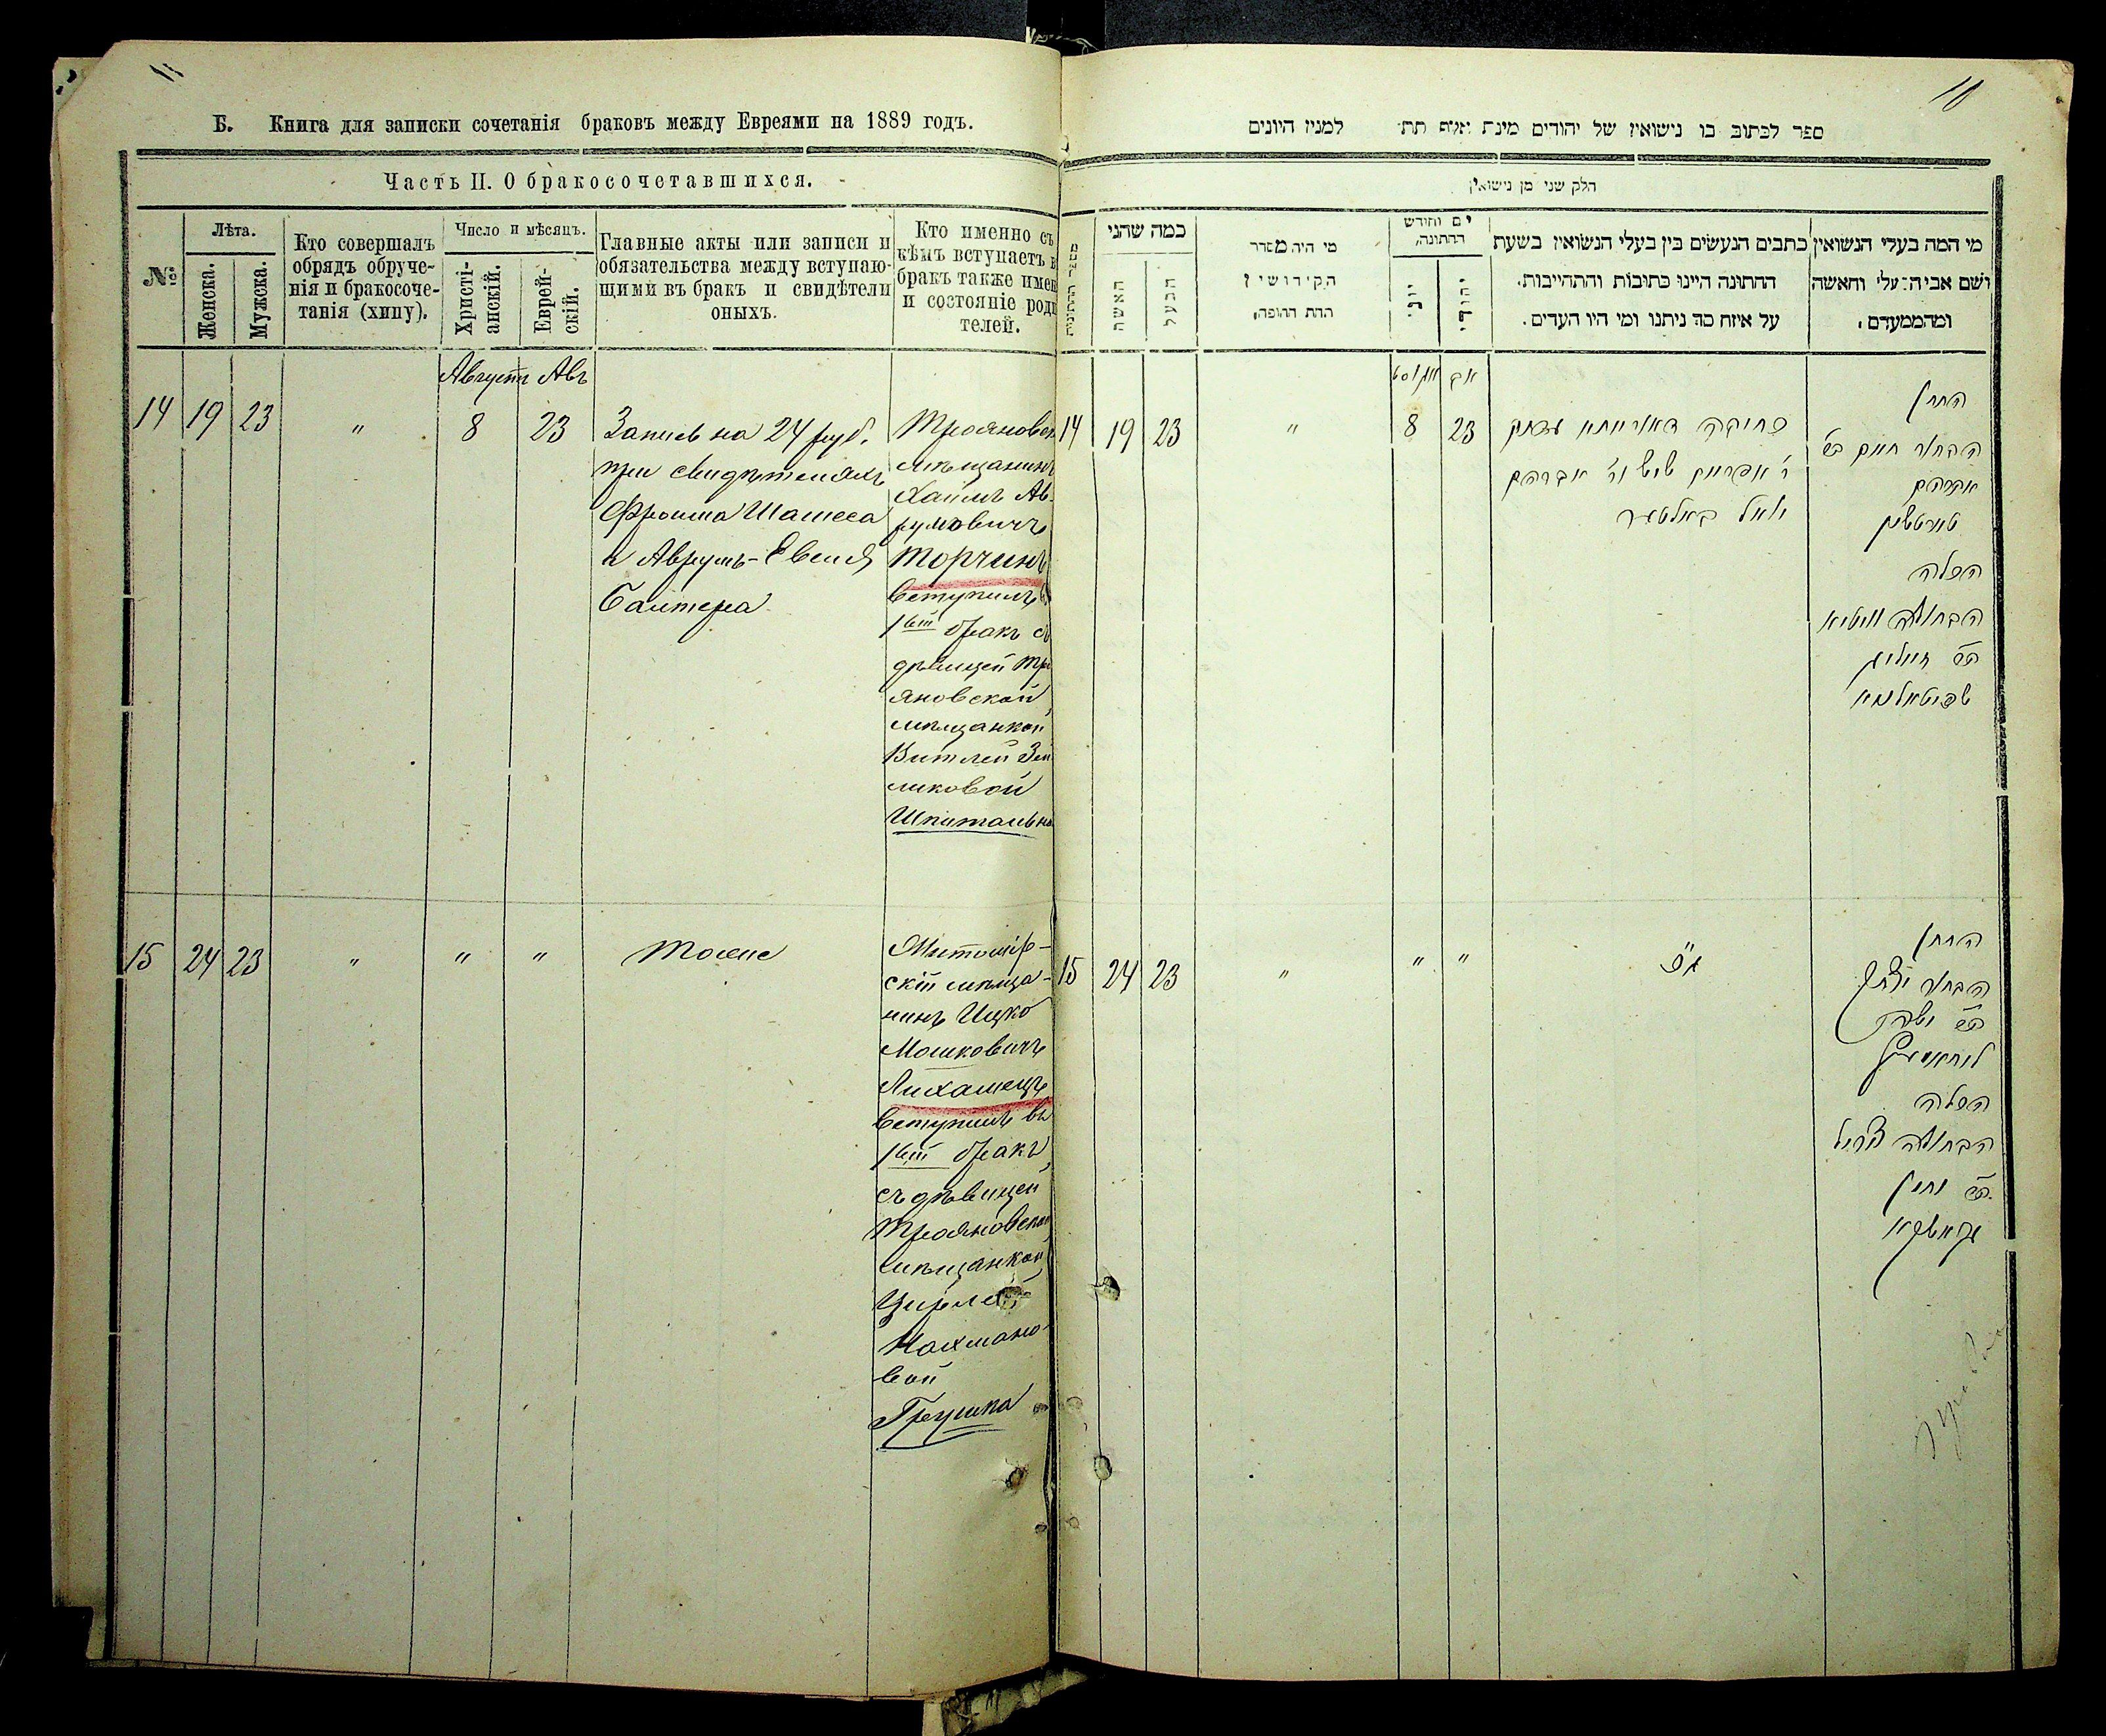 11
Б. Книга для записки сочетанія браковъ между Евреями на 1889 годъ.
Часть II. О бракосочетавшихся.
№
Лѣта.
Женска.
Мужска.
Кто совершалъ
обрядъ обруче-
нія и бракосоче-
танія (хипу).
Число и мѣсяцъ.
Христі-
анскій.
Еврей-
скій.
Главные акты или записи и
обязательства между вступаю-
щими въ бракъ и свидѣтели
оныхъ.
Кто именно съ
кѣмъ вступаетъ в
бракъ также имен
и состояніе роди
телей.
Августъ Авъ
14 19 23 " 8 23
Запись на 24 руб.
при свидѣтеляхъ
Фроима Шамеса
и Аврумъ-Евеля
Балтера
Трояновск
мѣщанинъ
Хаимъ Ав-
румовичъ
Торчинъ
вступилъ в
1ый бракъ съ
дѣвицей Тро
яновской
мѣщанкой
Витлей Зей
ликовой
Шпитальна
15 24 23 " " "
Тоже
Житомір-
скій мѣща-
нинъ Ицко
Мошковичъ
Лихамецъ
вступилъ въ
1ый бракъ
съ дѣвицей
Трояновской
мѣщанкой
Цирлей
Нахмано-
вой
Грушка
ספר לכתוב בו נישואין של יהודים מינת אלף תת למנין היונים
חלק שני מן נישואין
כמה שהני
האשה
הבעל
מי היה מסדר
הקידושין
תחת החופה,
יום וחודש
החתונה,
יוני
יהודי
כתבים הנעשים בין בעלי הנשואין בשעת
החתונה היינו כתובות והתחייבות.
על איזה סך ניתנו ומי היו העדים.
מי המה בעלי הנשואין
ושם אביה: עלי והאשה
ומהמעמדם,
אויגוסט אב
14 19 23 " 8 23
החתן
הבחור חיים ב״ר
אברהם
טורטשין
הכלה
הבתולה וויטיא
שפיטאלנא
15 24 23 " " "
החתן
הבחור יצחק
הכלה
הבתולה צירל
נחמן